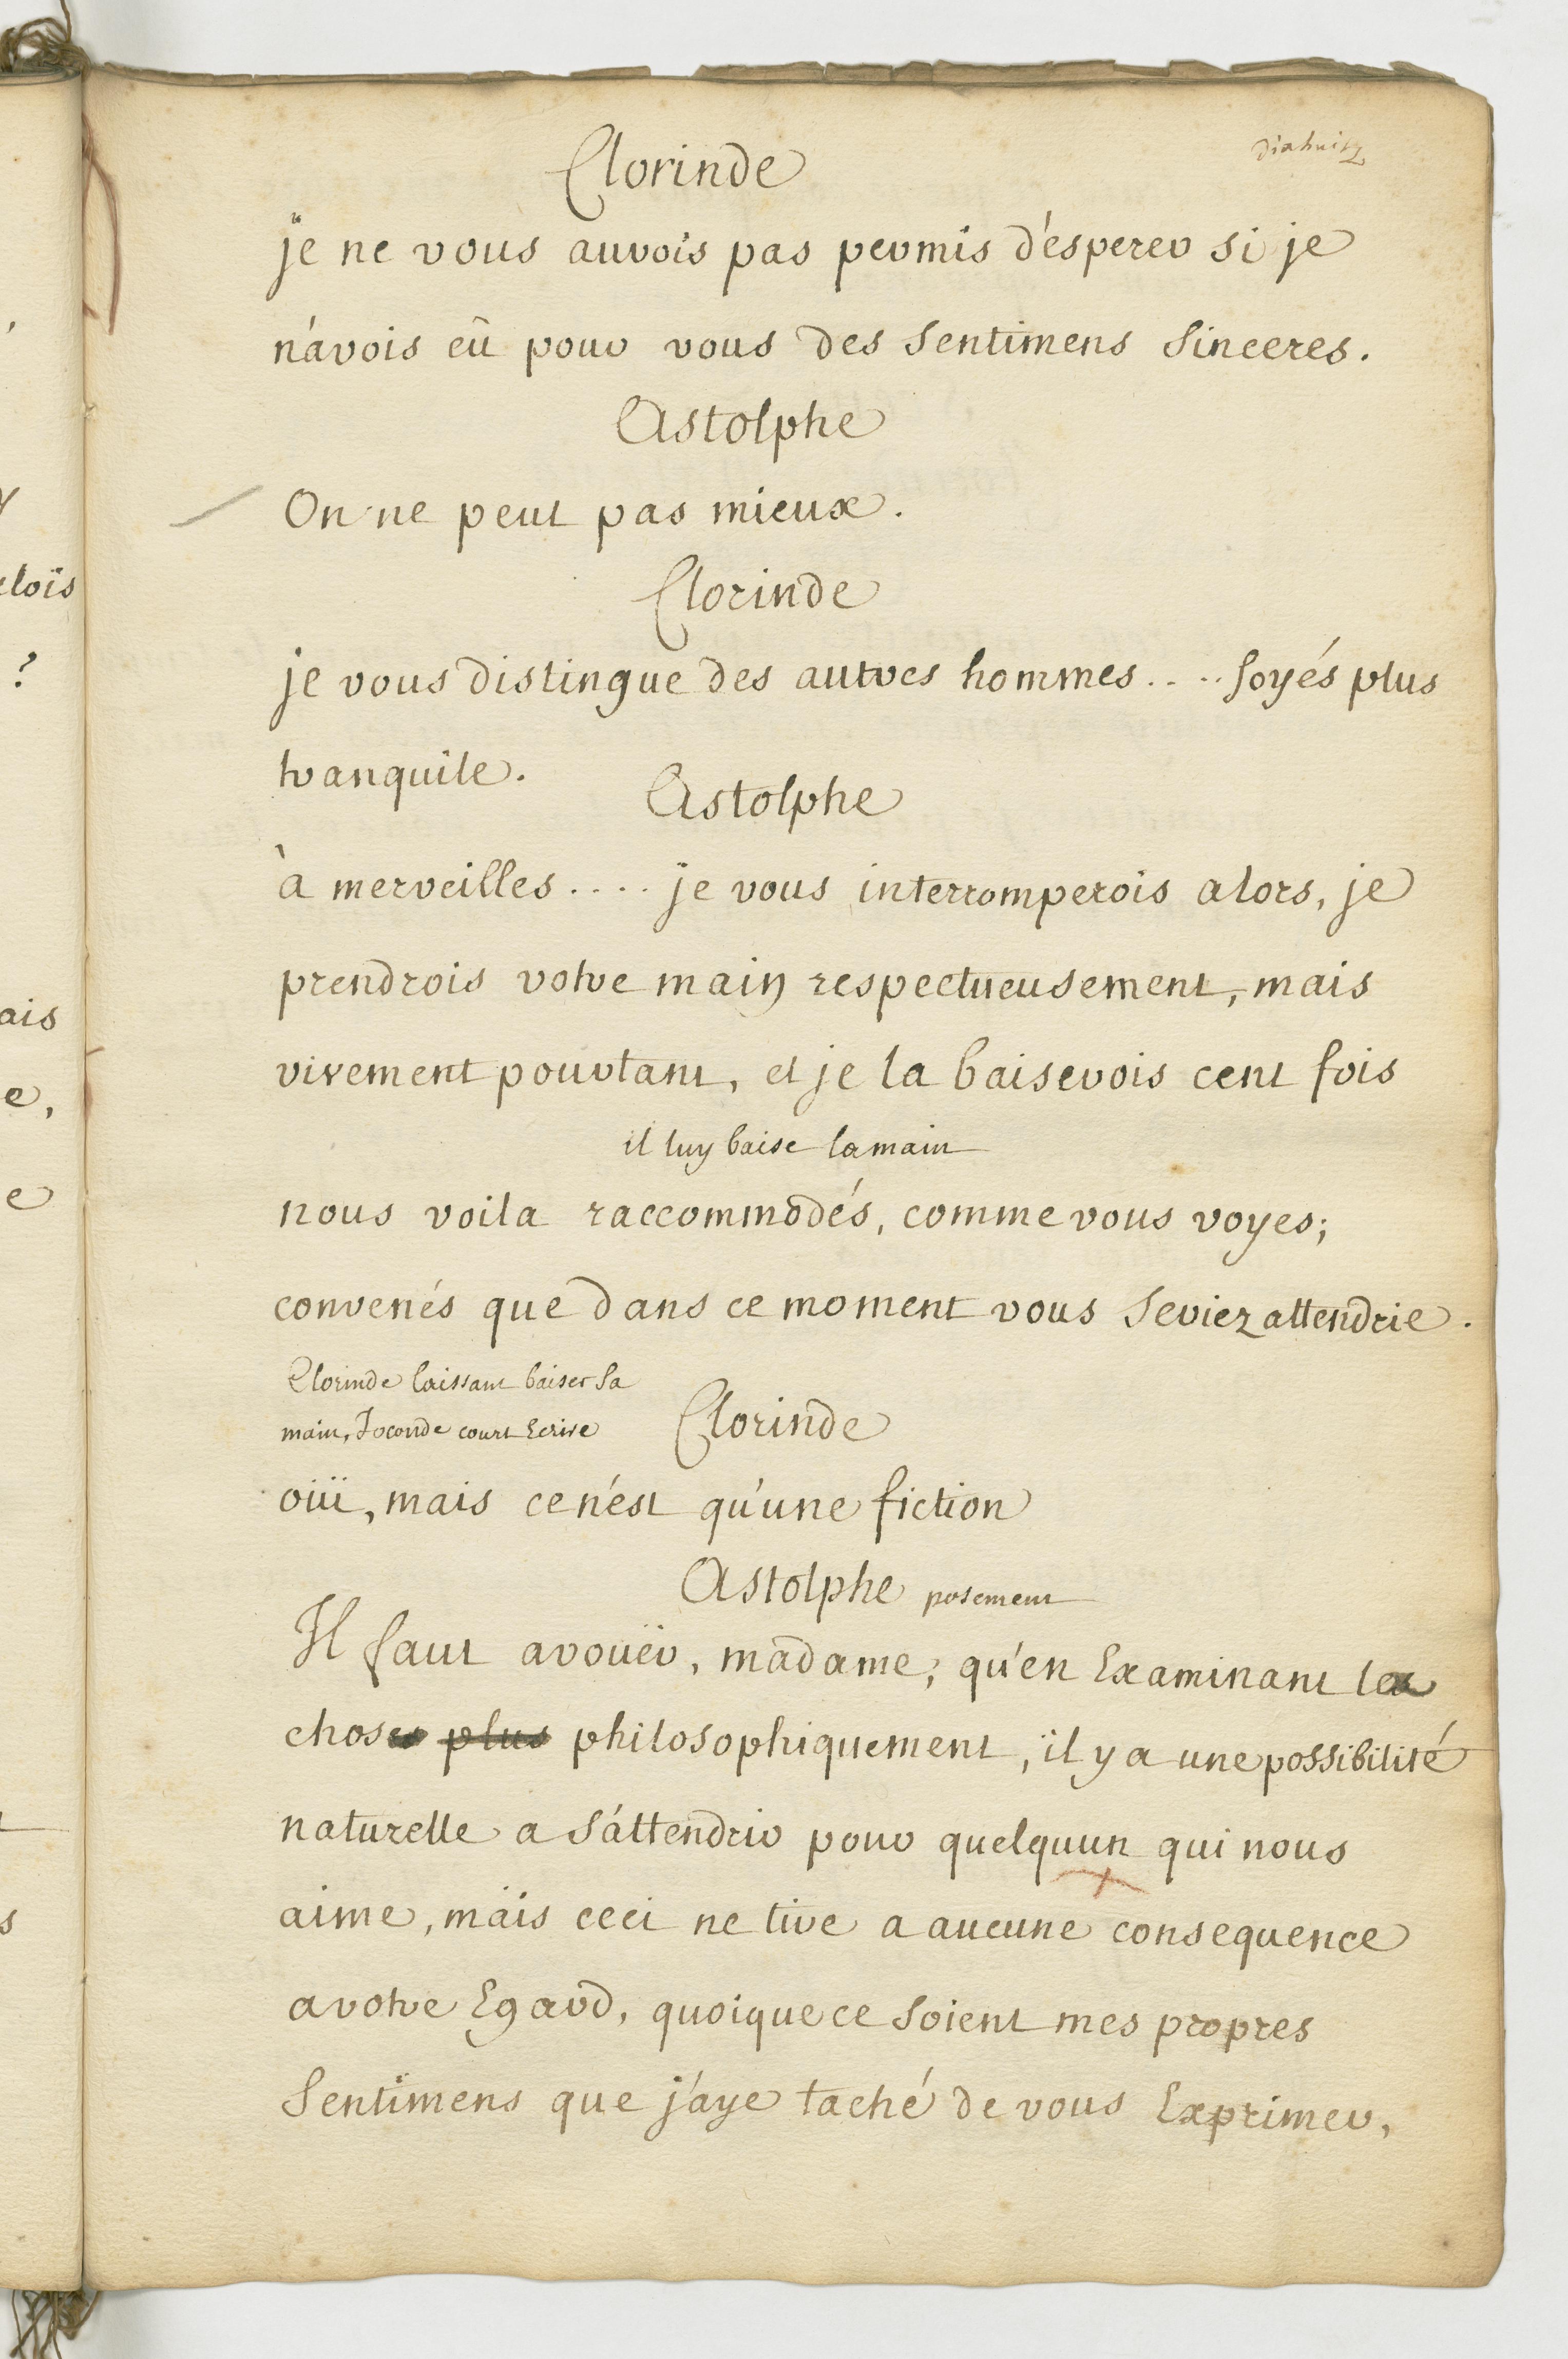 diahuity
Clorinde
je ne vous aurois pas permis d'esperer si je
n'avois eû pour vous des sentimens sinceres.
Astolphe
On ne peut pas mieux.
Clorinde
je vous distingue des autres hommes.... soyés plus
tranquile.
Astolphe
à merveilles.... je vous interromperois alors, je
prendrois votre main respectueusement, mais
vivement pourtant, et je la baiserois cent fois
il luy baise la main
nous voila raccommodés, comme vous voyes;
convenés que dans ce moment vous seriez attendrie.
Clorinde laissant baiser sa
main, Joconde court Ecrire
Clorinde
oüi, mais ce n'est qu'une fiction
Astolphe posement
Il faut avoüer, madame, qu'en Examinant la
chose plus philosophiquement, il y a une possibilité
naturelle a s'attendrir pour quelquun qui nous
aime, mais ceci ne tire a aucune consequence
a votre Egard, quoique ce soient mes propres
sentimens que j'aye taché de vous Exprimer,
clois
?
ais
e,
e
s